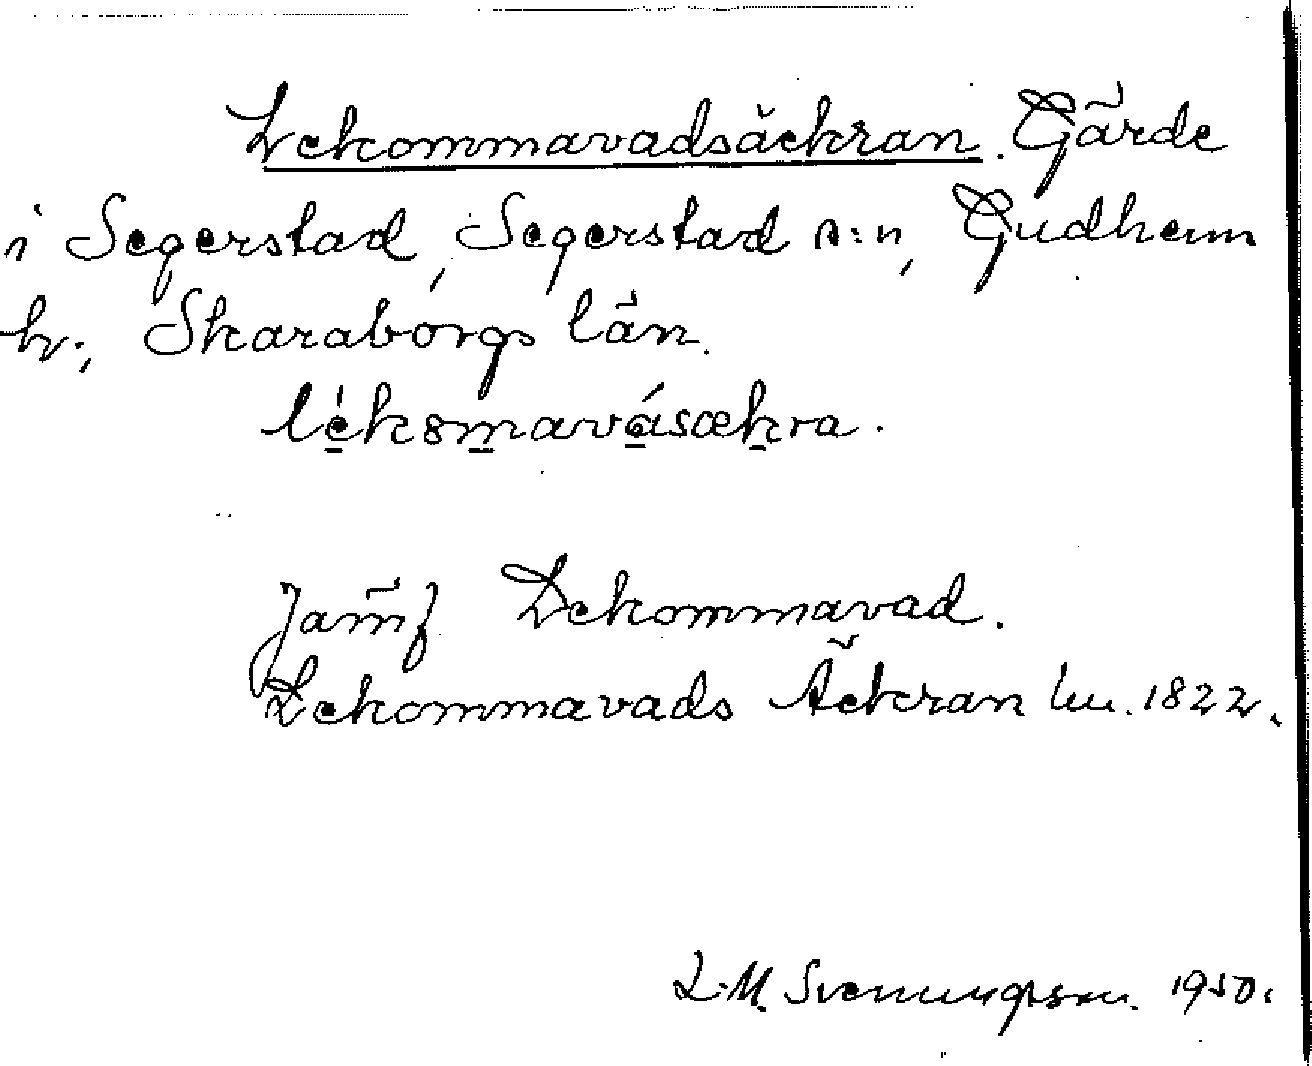 Lekommavadsäckran. Gärde
i Segerstad, Segerstad s:n, Gudhem
hr., Skaraborgs län.
léksmavásækra.
Jämf Lekommavad.
Lekommavads Äckran lm. 1822.
L.M. Svenungsson. 1950.